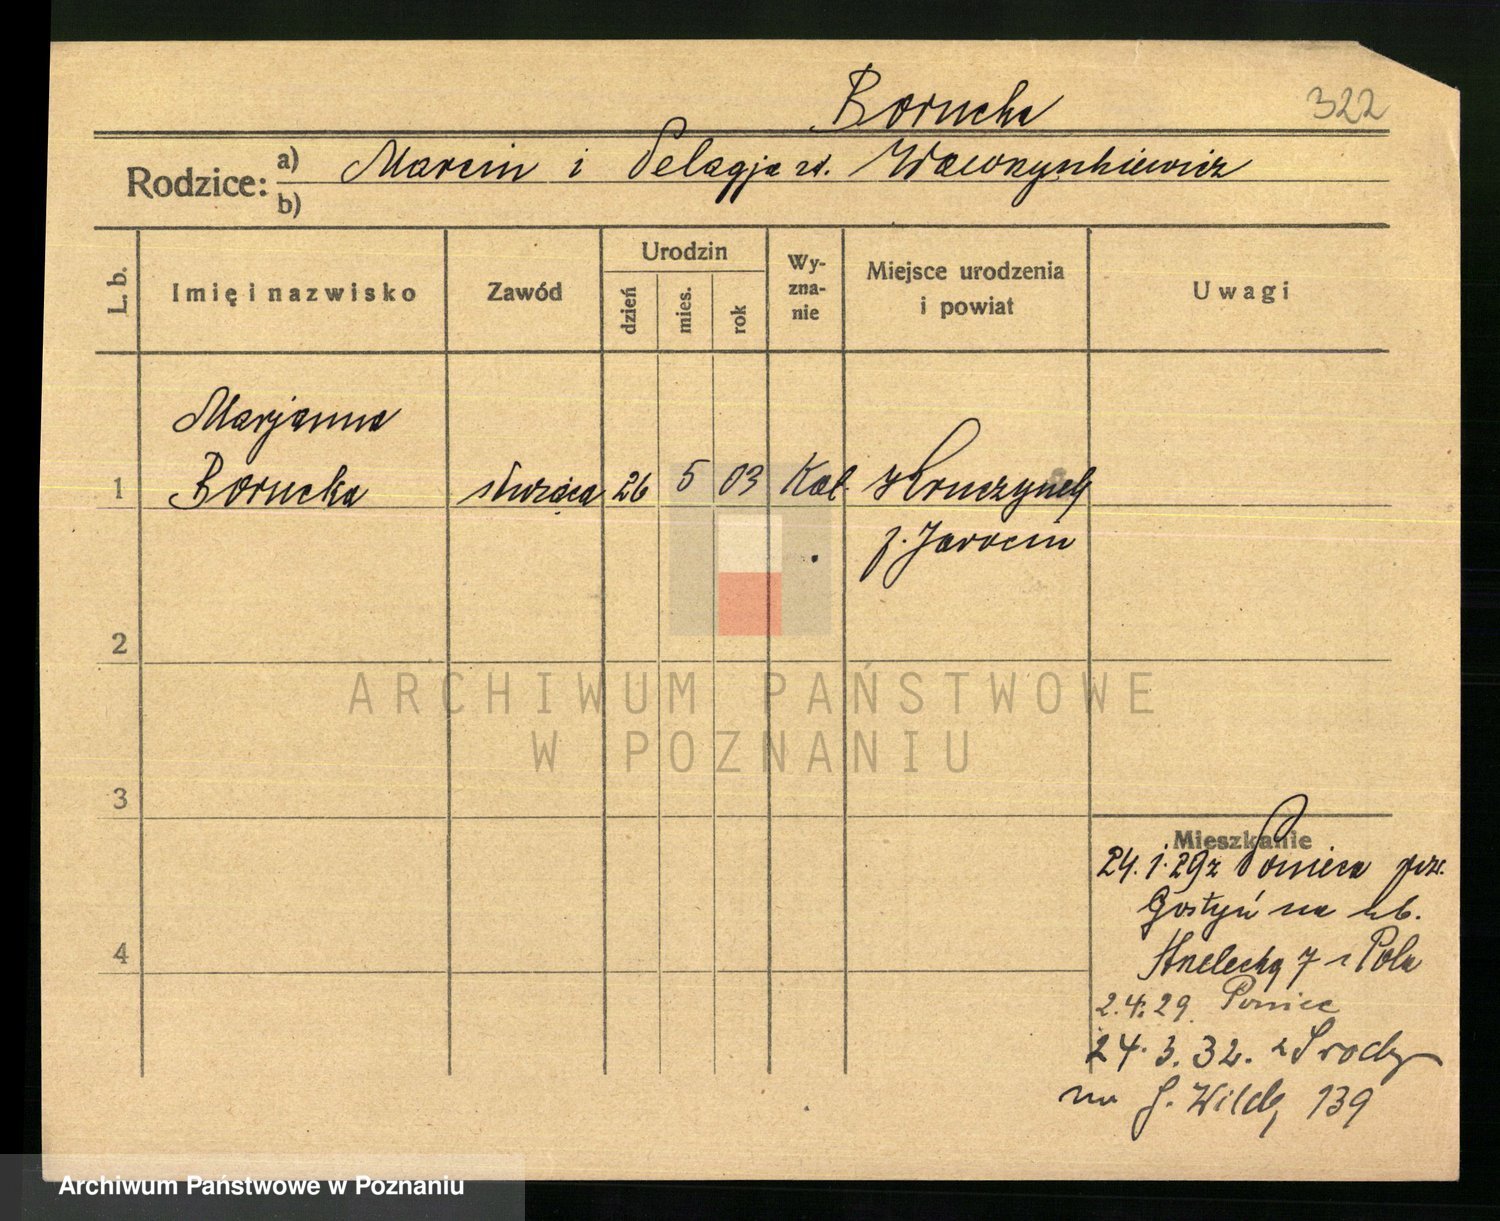 Borucka
322
Rodzice: a) Marcin i Pelagja zd. Wawrzynkiewicz
b)
L. b.
Imię i nazwisko
Zawód
Urodzin
dzień
mies.
rok
Wy-
zna-
nie
Miejsce urodzenia
i powiat
Uwagi
Marjanna
1 Borucka służąca 26 5 03 Kat.
p. Jarocin
2
ARCHIWUM PAŃSTWOWE
W POZNANIU
3
Mieszkanie
24. 1. 29 z Ponieca pow.
Gostyń na ub.
Strzelecką 7
4
2.4.29. Poniec
24. 3. 32. z Środy
na G. Wildę 139
Archiwum Państwowe w Poznaniu